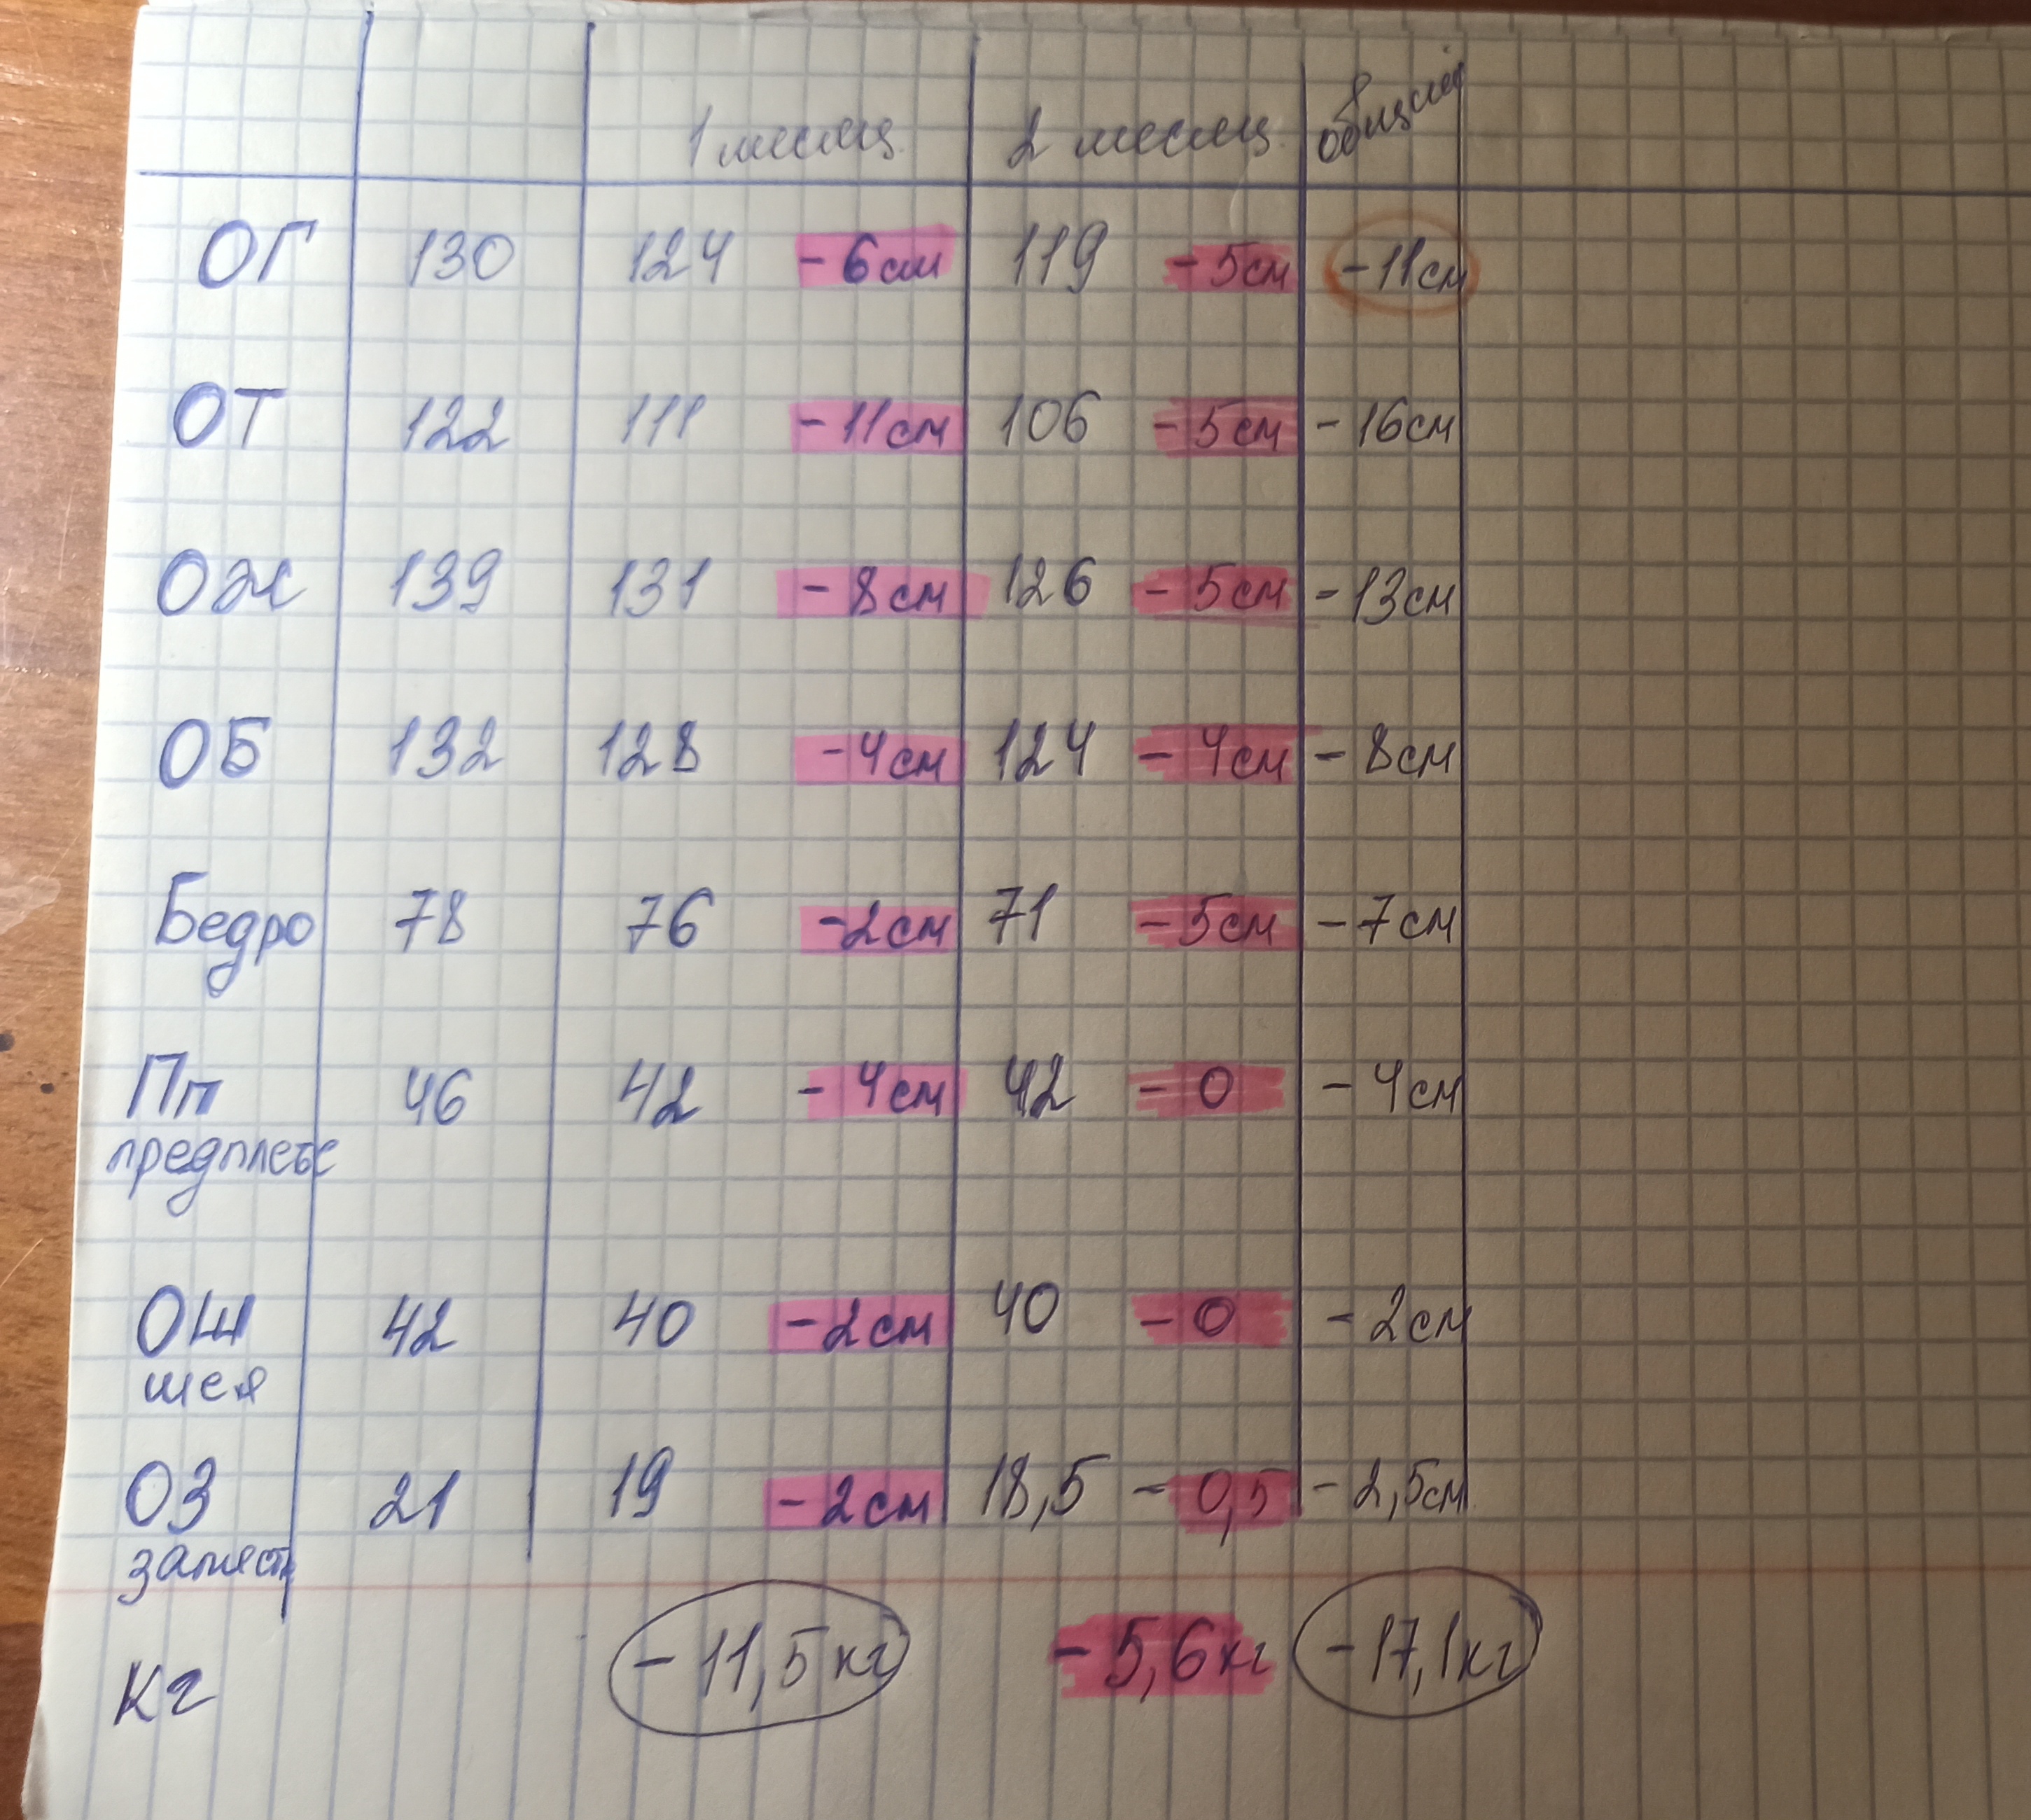 1 месяц 2 месяц общий
ОГ 130 124 -6см 119 -5см -11см
ОТ 122 111 -11см 106 -5см -16см
ОЖ 139 131 -8см 126 -5см -13см
ОБ 132 128 -4см 124 -4см -8см
Бедро 78 76 -2см 71 -5см -7см
Пп 46 42 -4см 42 -0 -4см
предплечье
ОШ 42 40 -2см 40 -0 -2см
шея
ОЗ 21 19 -2см 18,5 -0,5 -2,5см
запяст
кг -11,5кг -5,6кг -17,1кг